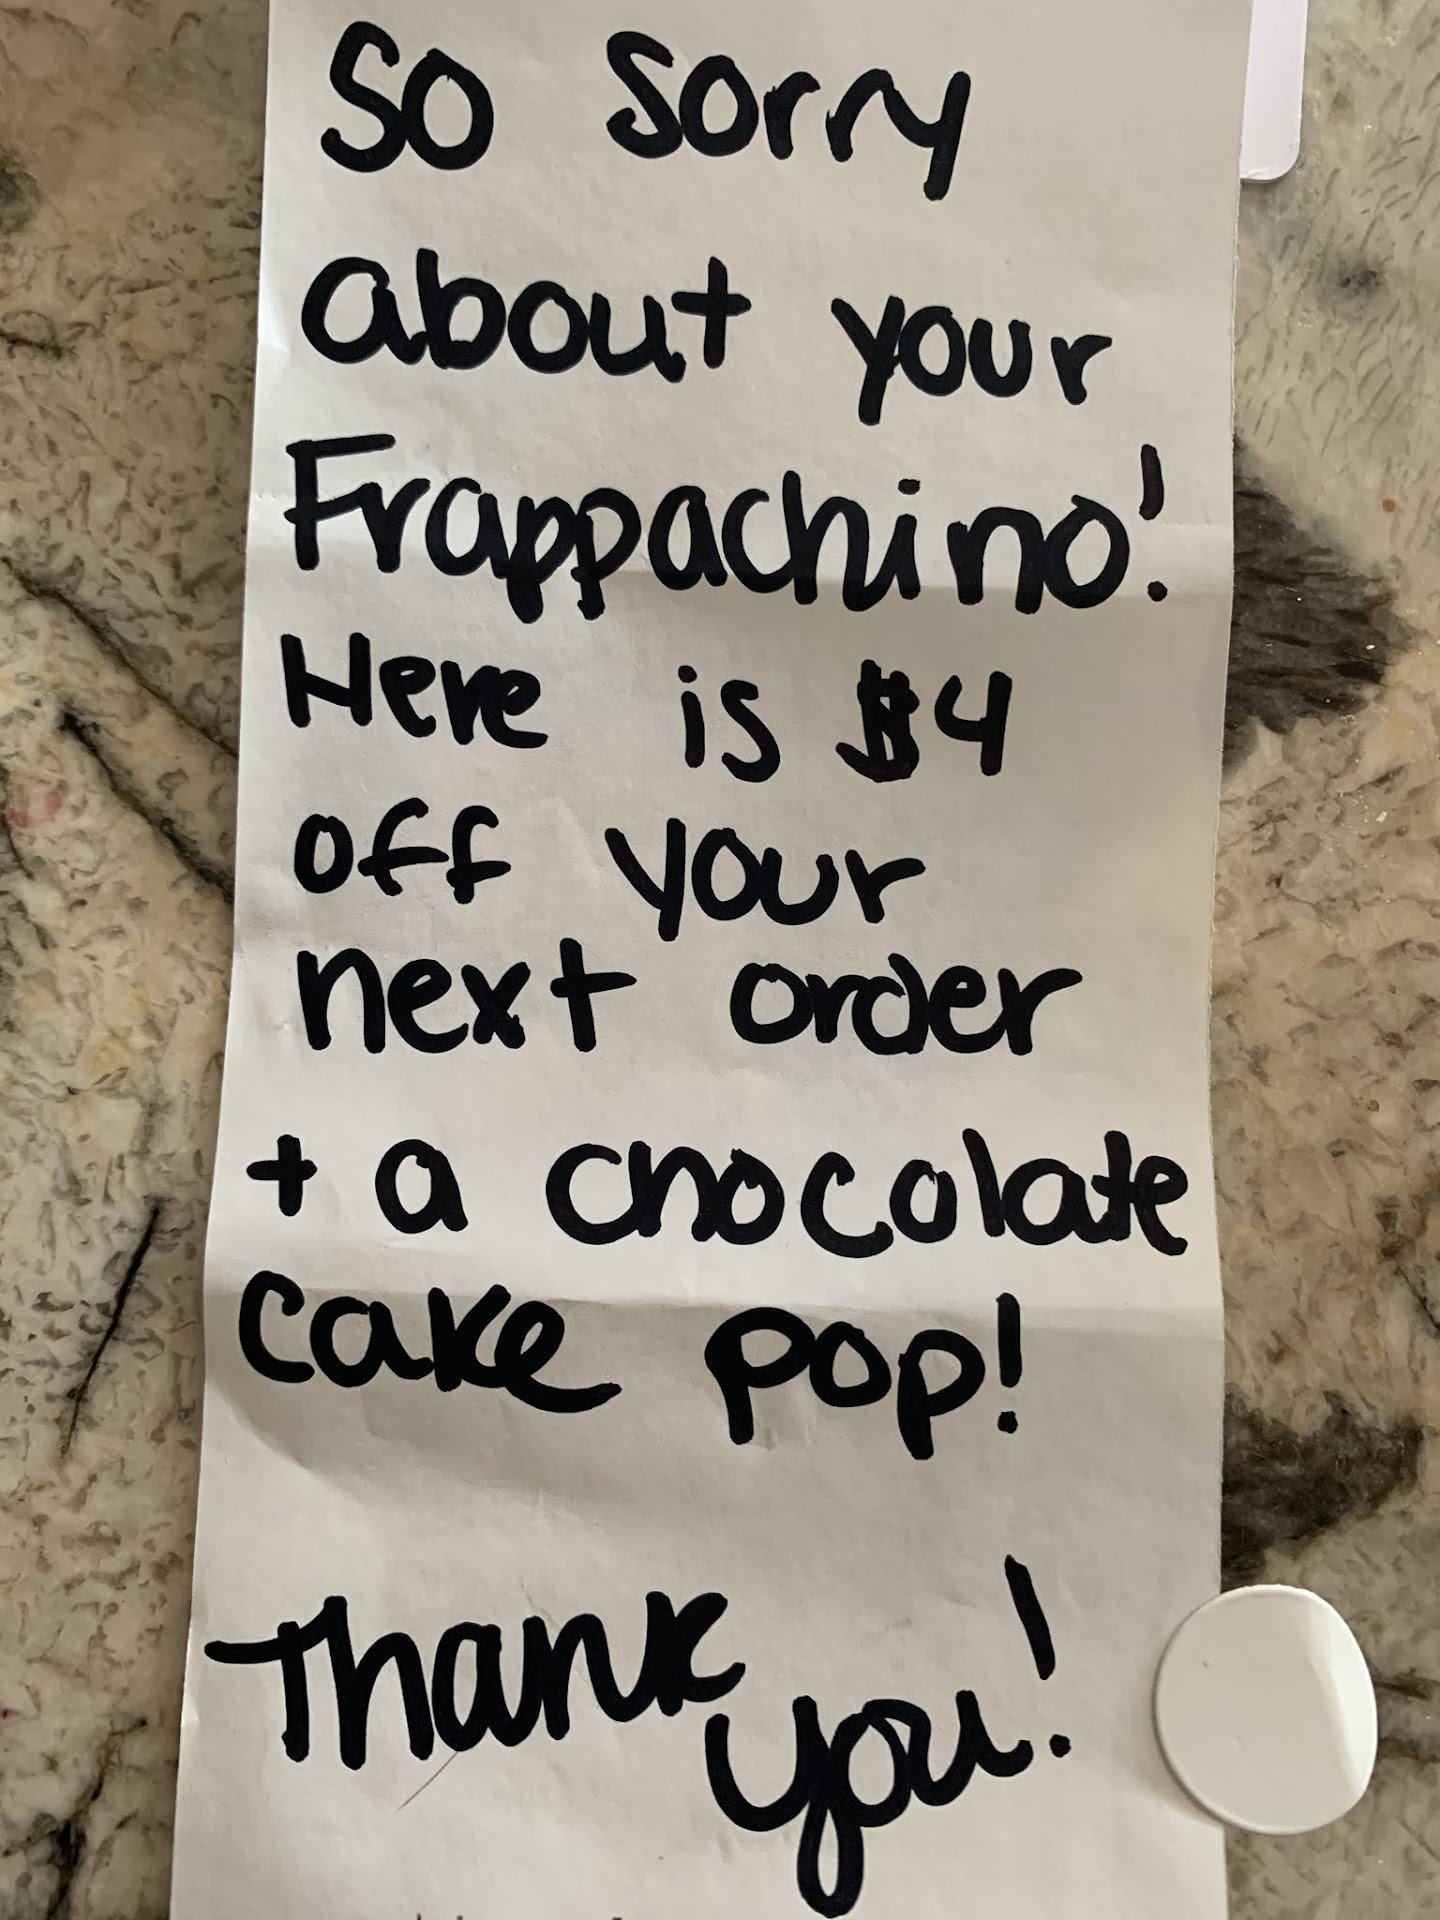 So Sorry
about your
Frappachino!
Here is $4
off your
next order
+ a chocolate
cake pop!
Thank
you!